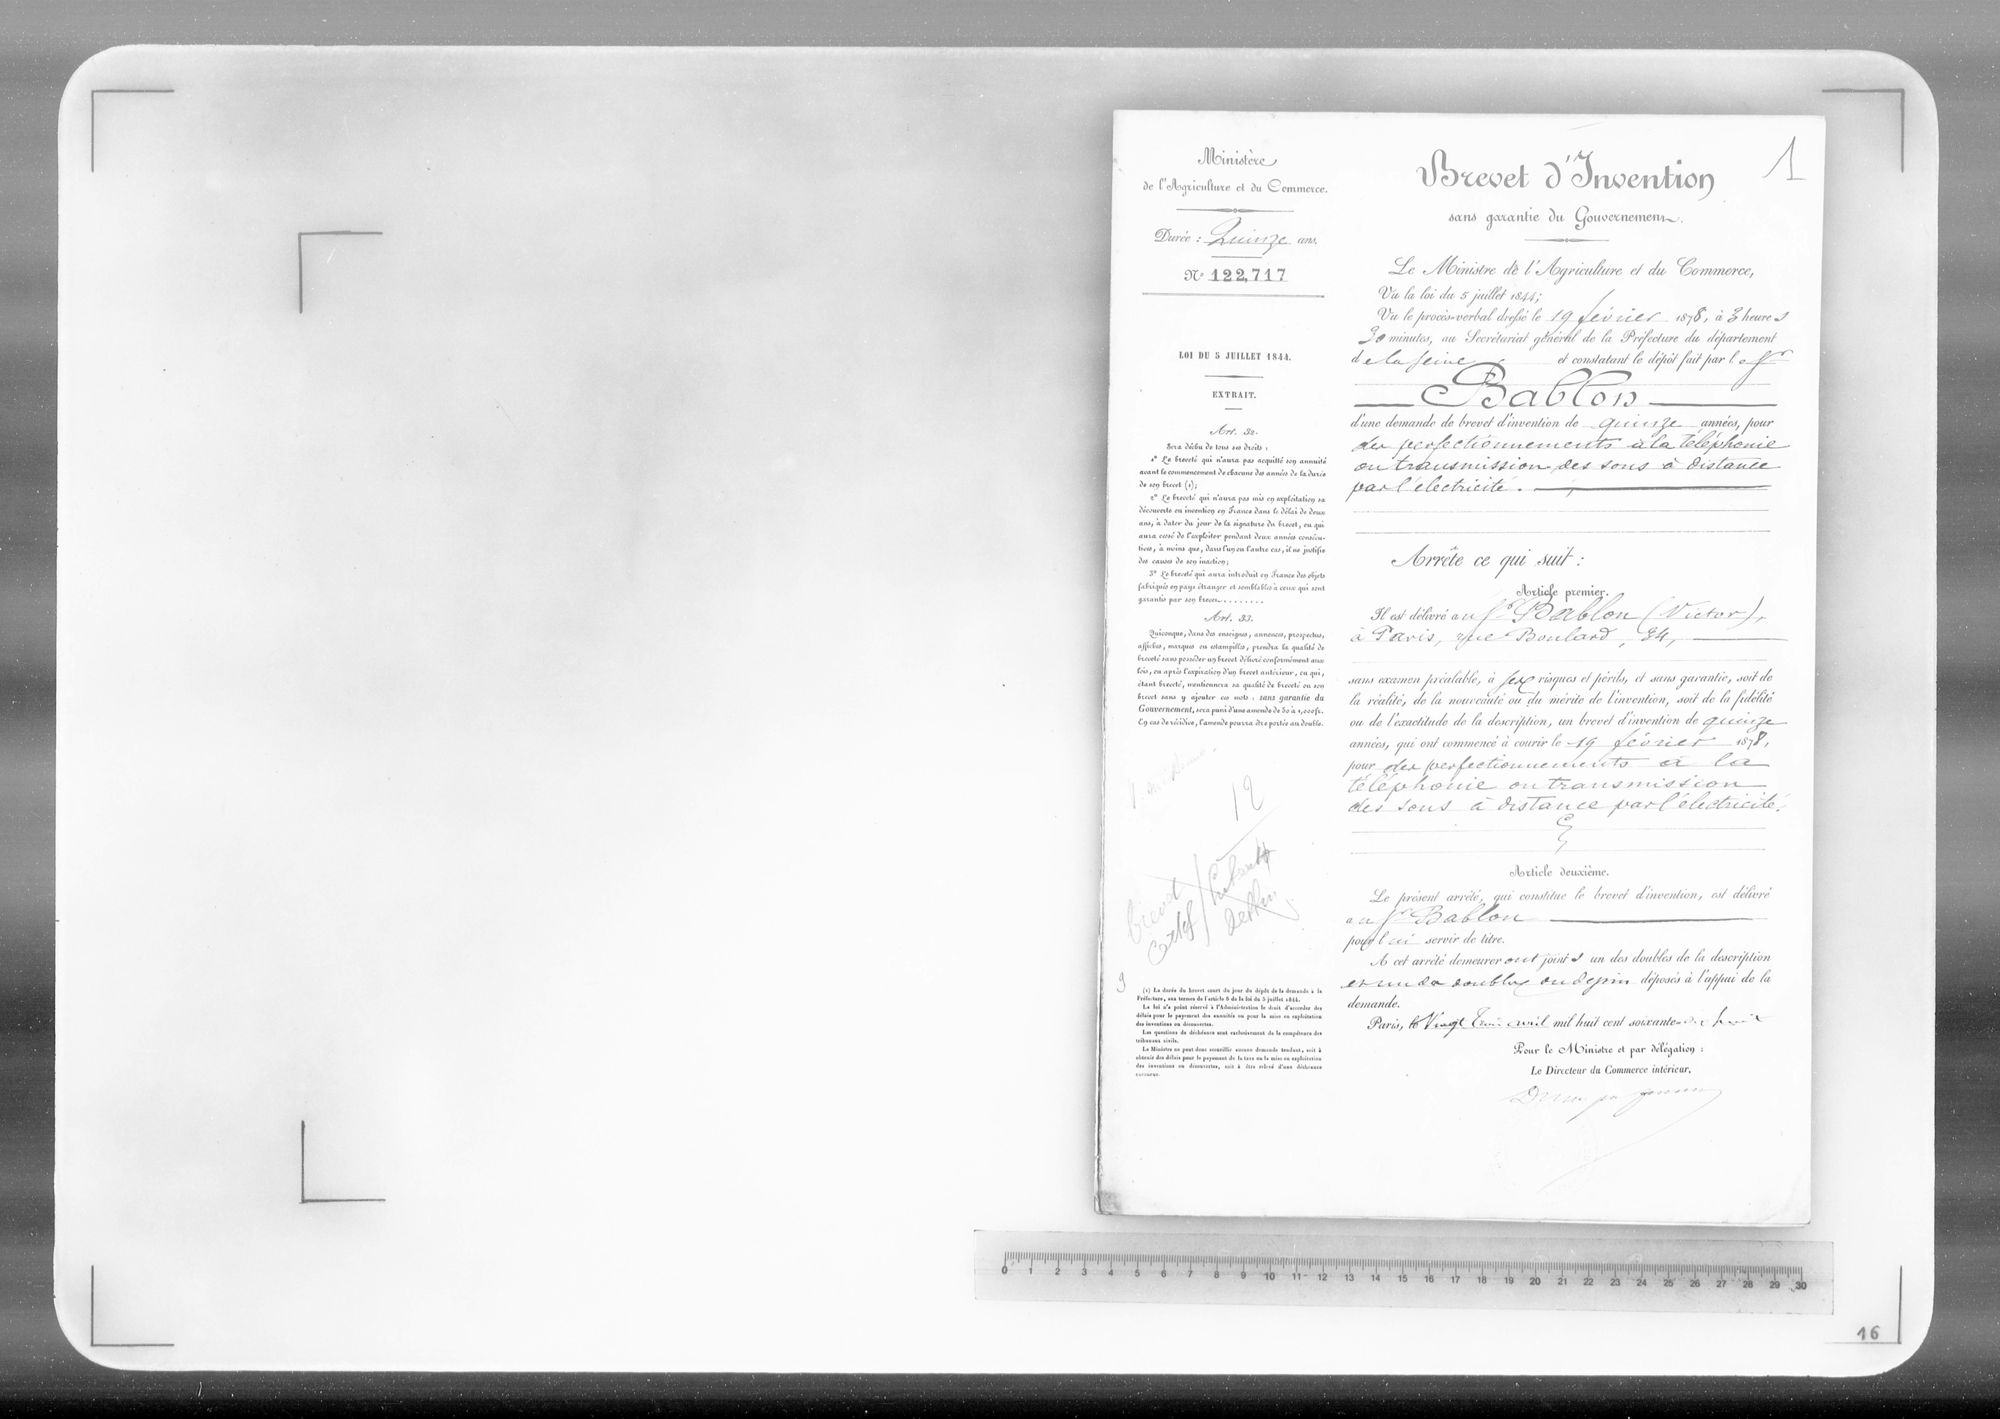 Ministère
de l'Agriculture et du Commerce.
Durée : Quinze ans.
N° 122,717
LOI DU 5 JUILLET 1844.
EXTRAIT.
Art. 32.
Sera déchu de tous ses droits :
1° Le breveté qui n'aura pas acquitté son annuité
avant le commencement de chacune des années de la durée
de son brevet (1);
2° Le breveté qui n'aura pas mis en exploitation sa
découverte ou invention en France dans le délai de deux
ans, à dater du jour de la signature du brevet, ou qui
aura cessé de l'exploiter pendant deux années consécu-
tives, à moins que, dans l'un ou l'autre cas, il ne justifie
des causes de son inaction;
3° Le breveté qui aura introduit en France des objets
fabriqués en pays étranger et semblables à ceux qui sont
garantis par son brevet........
Art. 33.
Quiconque, dans des enseignes, annonces, prospectus,
affiches, marques ou estampilles, prendra la qualité de
breveté sans posséder un brevet délivré conformément aux
lois, ou après l'expiration d'un brevet antérieur, ou qui,
étant breveté, mentionnera sa qualité de breveté ou son
brevet sans y ajouter ces mots : sans garantie du
Gouvernement, sera puni d'une amende de 50 à 1,000 fr.
En cas de récidive, l'amende pourra être portée au double.
12
brevet
9
(1) La durée du brevet court du jour du dépôt de la demande à la
Préfecture, aux termes de l'article 8 de la loi du 5 juillet 1844.
La loi n'a point réservé à l'Administration le droit d'accorder des
délais pour le payement des annuités ou pour la mise en exploitation
des inventions ou découvertes.
Les questions de déchéance sont exclusivement de la compétence des
tribunaux civils.
Le Ministre ne peut donc accueillir aucune demande tendant, soit à
obtenir des délais pour le payement de la taxe ou la mise en exploitation
des inventions ou découvertes, soit à être relevé d'une déchéance
encourue.
1
Brevet d'Invention
sans garantie du Gouvernement.
Le Ministre de l'Agriculture et du Commerce,
Vu la loi du 5 juillet 1844;
Vu le procès-verbal dressé le 19 février 1878, à 3 heures
30 minutes, au Secrétariat général de la Préfecture du département
de la Seine et constatant le dépôt fait par le Sr
Bablon
d'une demande de brevet d'invention de quinze années, pour
des perfectionnements à la téléphonie
ou transmission des sons à distance
par l'électricité.
Arrête ce qui suit :
Article premier.
Il est délivré au Sr Bablon (Victor),
à Paris, rue Boulard, 34,
sans examen préalable, à ses risques et périls, et sans garantie, soit de
la réalité, de la nouveauté ou du mérite de l'invention, soit de la fidélité
ou de l'exactitude de la description, un brevet d'invention de quinze
années, qui ont commencé à courir le 19 février 1878,
pour des perfectionnements à la
téléphonie ou transmission
des sons à distance par l'électricité.
Article deuxième.
Le présent arrêté, qui constitue le brevet d'invention, est délivré
au Sr Bablon
pour lui servir de titre.
A cet arrêté demeureront joints un des doubles de la description
et un des doubles du dessin déposés à l'appui de la
demande.
Paris, le Vingt Trois avril mil huit cent soixante-dix-huit
Pour le Ministre et par délégation :
Le Directeur du Commerce intérieur,
0 1 2 3 4 5 6 7 8 9 10 11 12 13 14 15 16 17 18 19 20 21 22 23 24 25 26 27 28 29 30
16